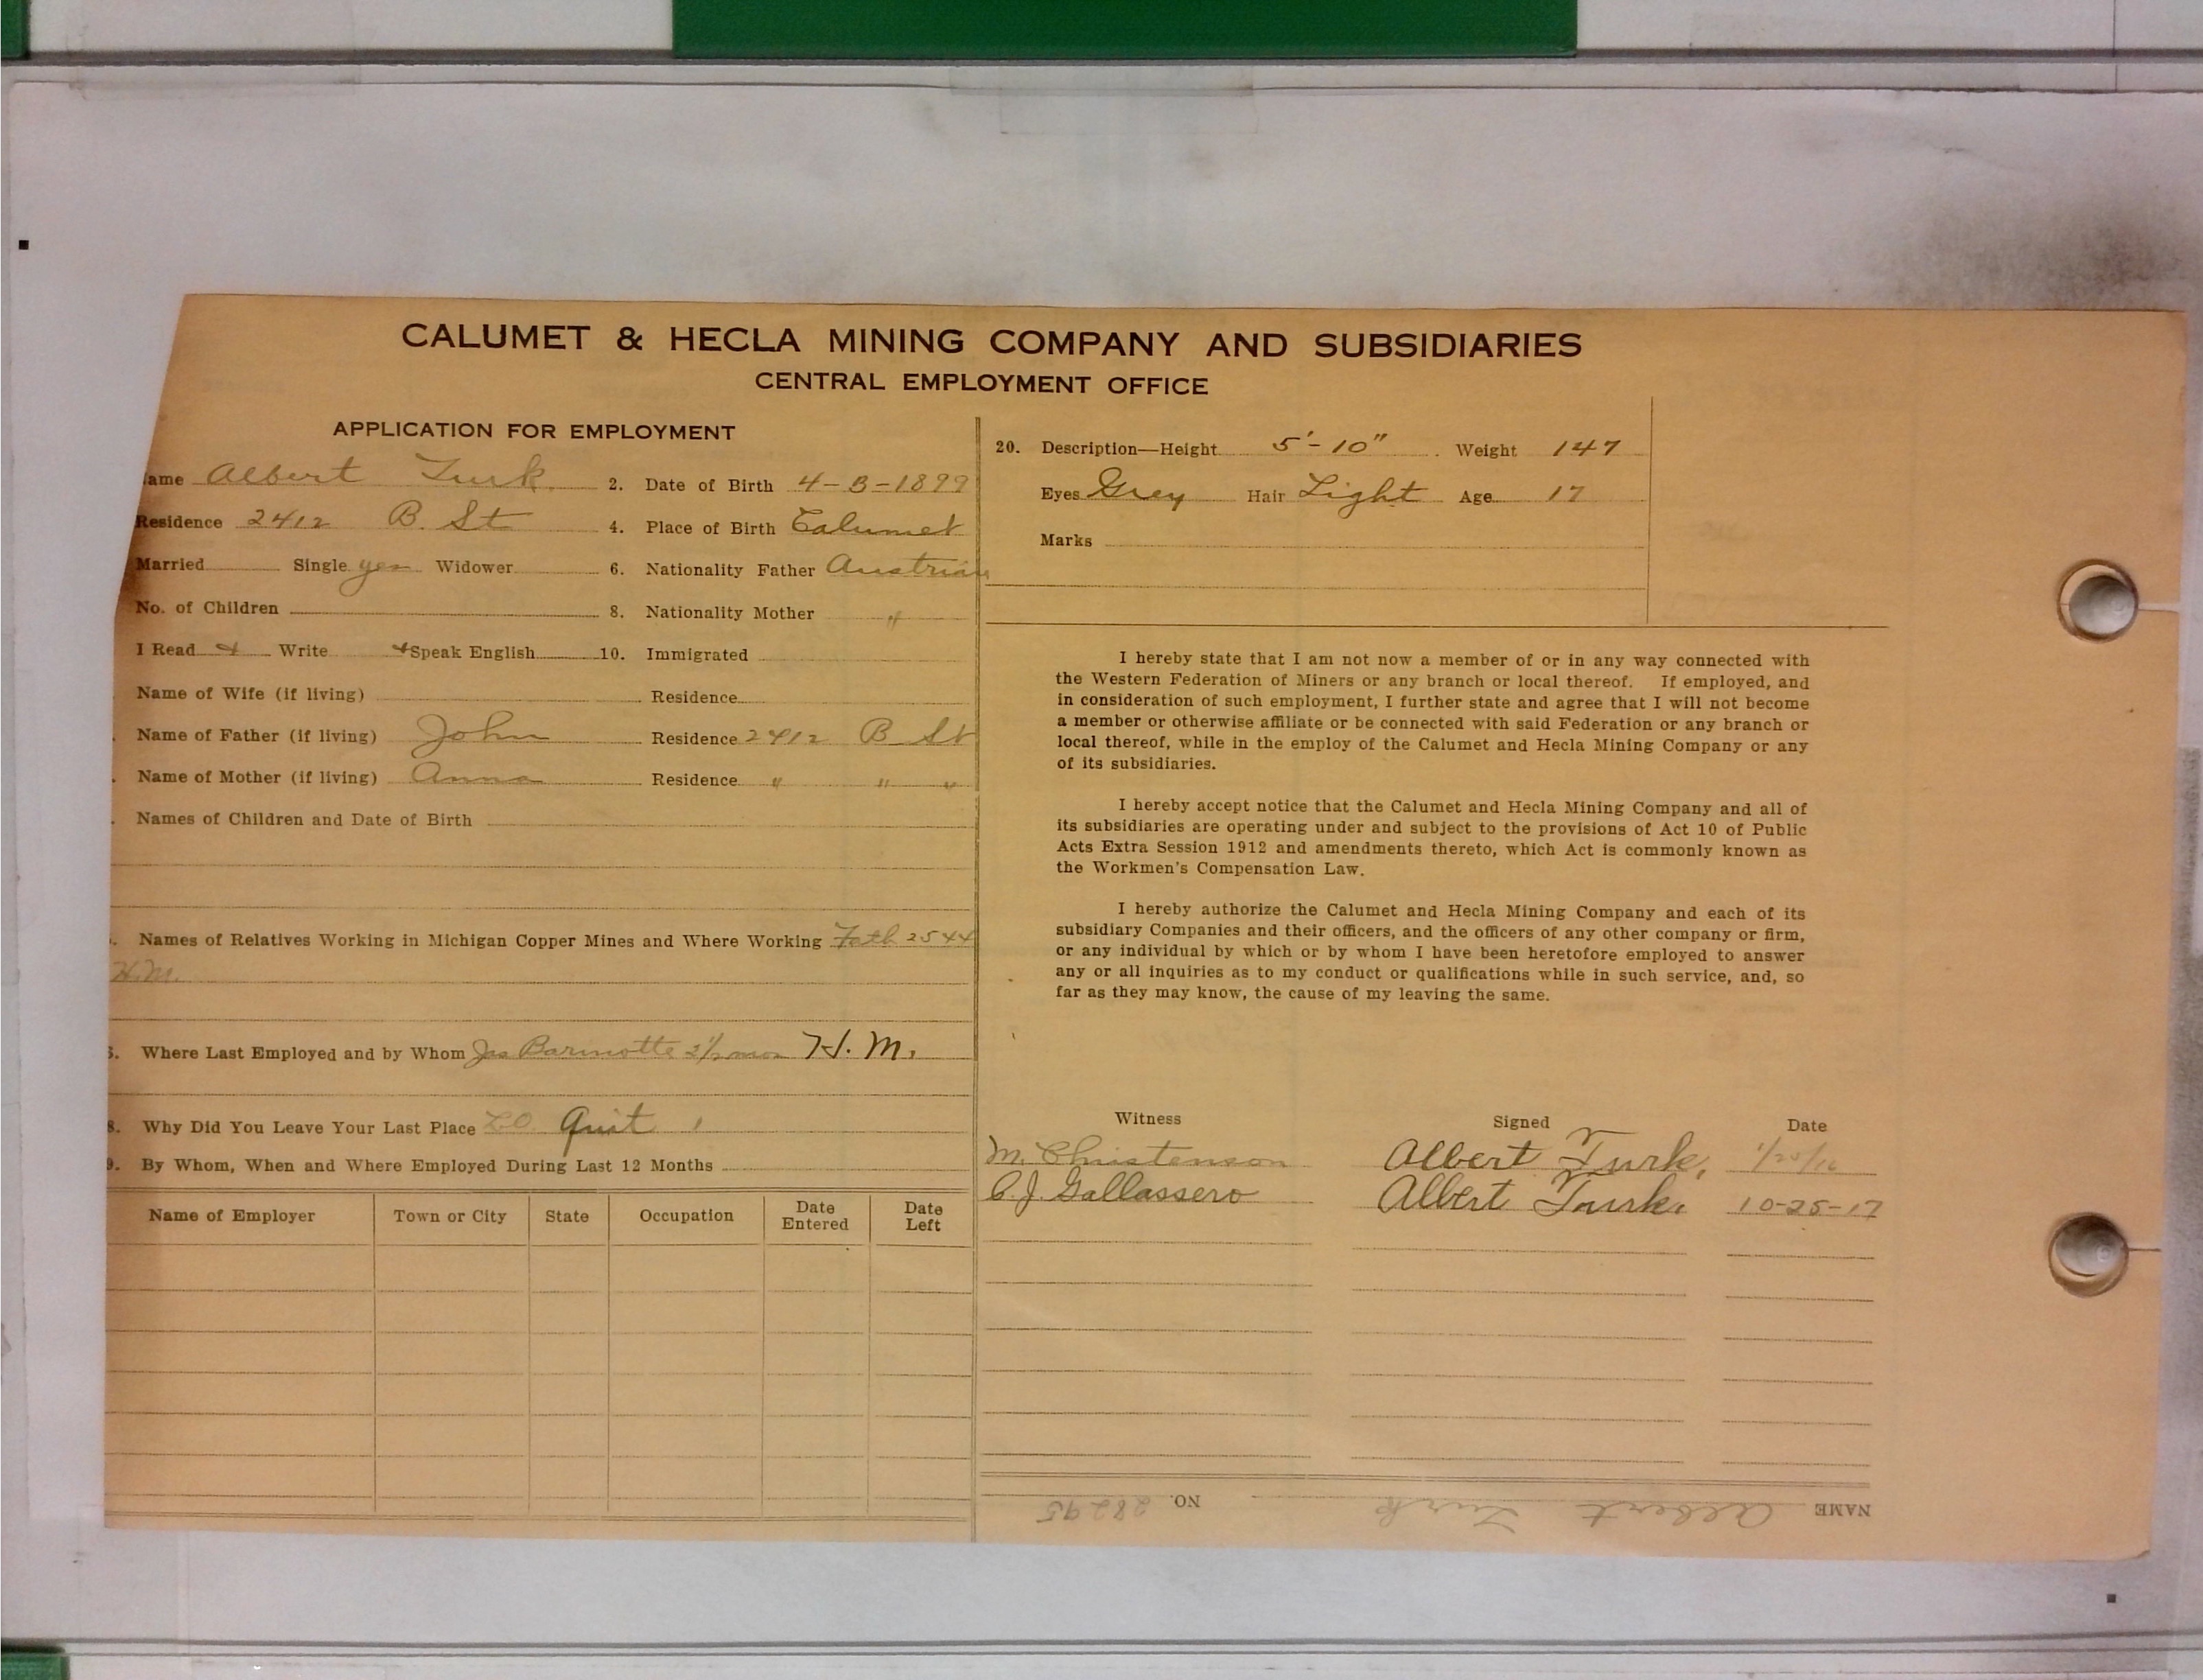 CALUMET & HECLA MINING COMPANY AND SUBSIDIARIES
CENTRAL EMPLOYMENT OFFICE
APPLICATION FOR EMPLOYMENT
ame Albert Turk 2. Date of Birth 4-3-1899
Residence 2412 B. St 4. Place of Birth Calumet
Married Single yes Widower 6. Nationality Father Austrian
No. of Children 8. Nationality Mother "
I Read & Write & Speak English 10. Immigrated
Name of Wife (if living) Residence
Name of Father (if living) John Residence 2412 B St
Name of Mother (if living) Anna Residence " " "
Names of Children and Date of Birth
Names of Relatives Working in Michigan Copper Mines and Where Working Fath 2544
H.M.
Where Last Employed and by Whom H. M.
8. Why Did You Leave Your Last Place Quit
9. By Whom, When and Where Employed During Last 12 Months
Name of Employer Town or City State Occupation Date Entered Date Left
20. Description—Height 5'-10" Weight 147
Eyes Grey Hair Light Age 17
Marks
I hereby state that I am not now a member of or in any way connected with
the Western Federation of Miners or any branch or local thereof. If employed, and
in consideration of such employment, I further state and agree that I will not become
a member or otherwise affiliate or be connected with said Federation or any branch or
local thereof, while in the employ of the Calumet and Hecla Mining Company or any
of its subsidiaries.
I hereby accept notice that the Calumet and Hecla Mining Company and all of
its subsidiaries are operating under and subject to the provisions of Act 10 of Public
Acts Extra Session 1912 and amendments thereto, which Act is commonly known as
the Workmen's Compensation Law.
I hereby authorize the Calumet and Hecla Mining Company and each of its
subsidiary Companies and their officers, and the officers of any other company or firm,
or any individual by which or by whom I have been heretofore employed to answer
any or all inquiries as to my conduct or qualifications while in such service, and, so
far as they may know, the cause of my leaving the same.
Witness Signed Date
M. Christenson Albert Turk.
C. J. Gallassero Albert Turk. 10-25-17
NAME Albert Turk NO. 28295